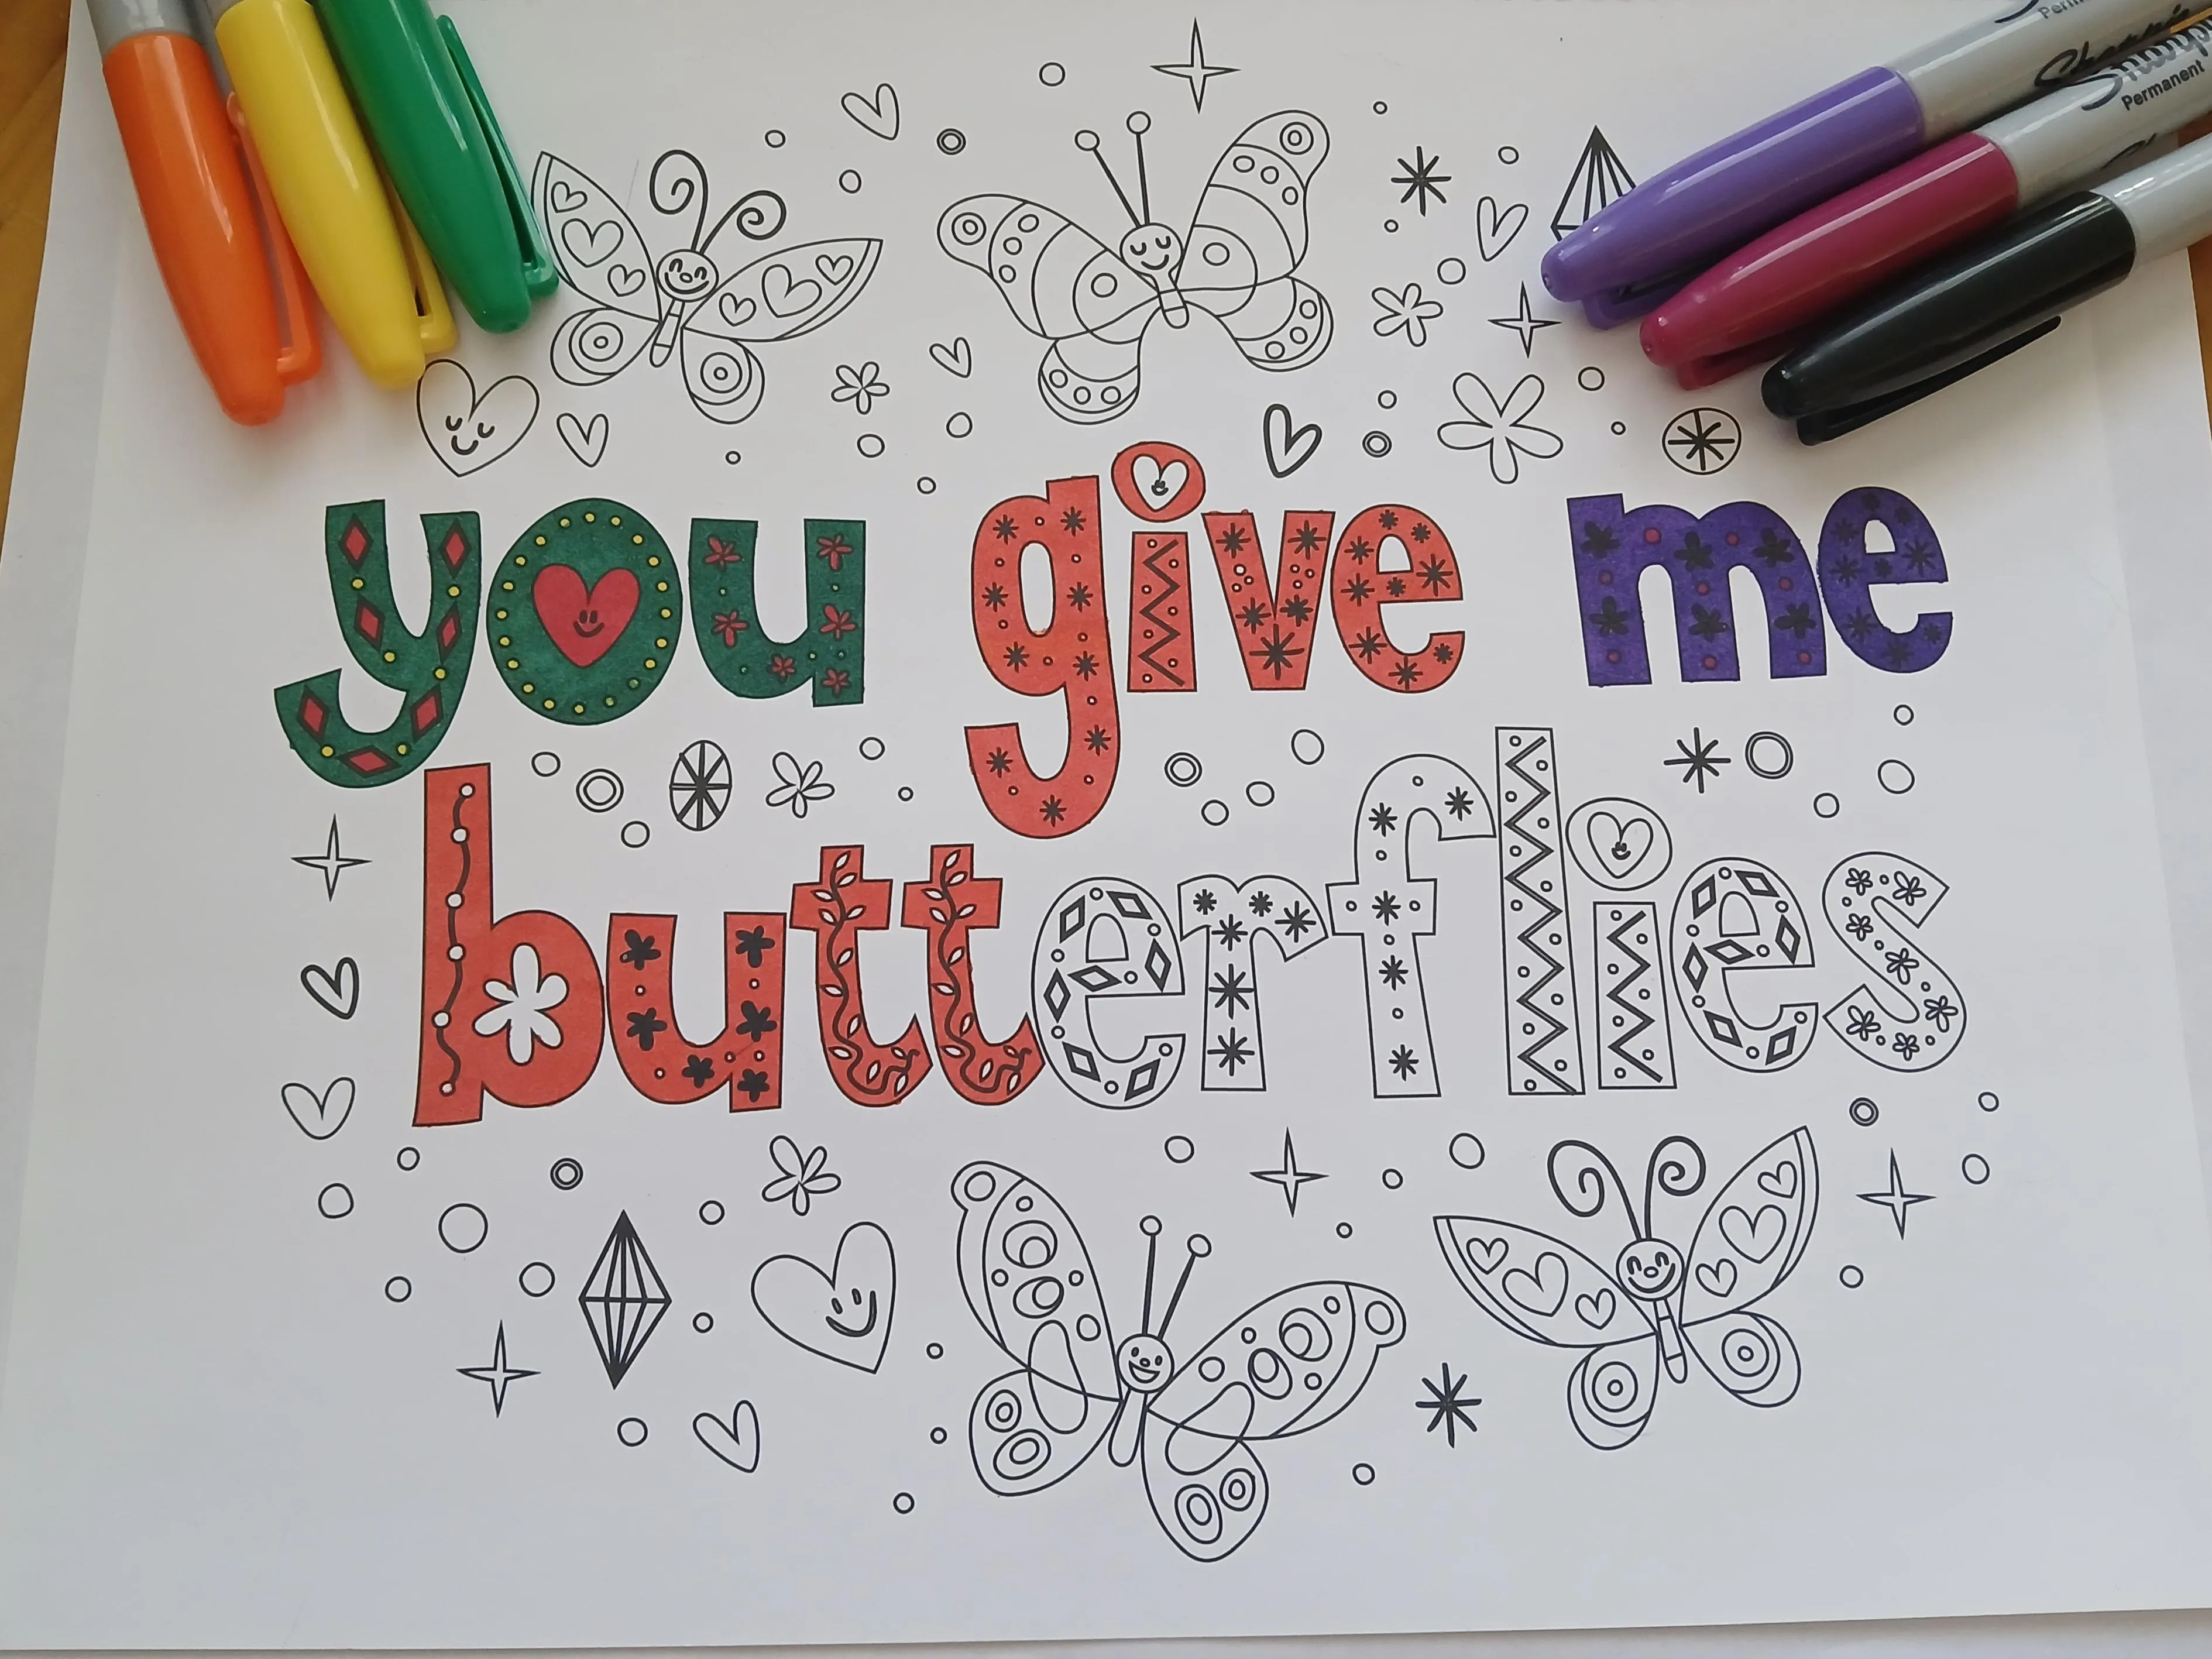 you give me
butterflies
Sharpie
Permanent